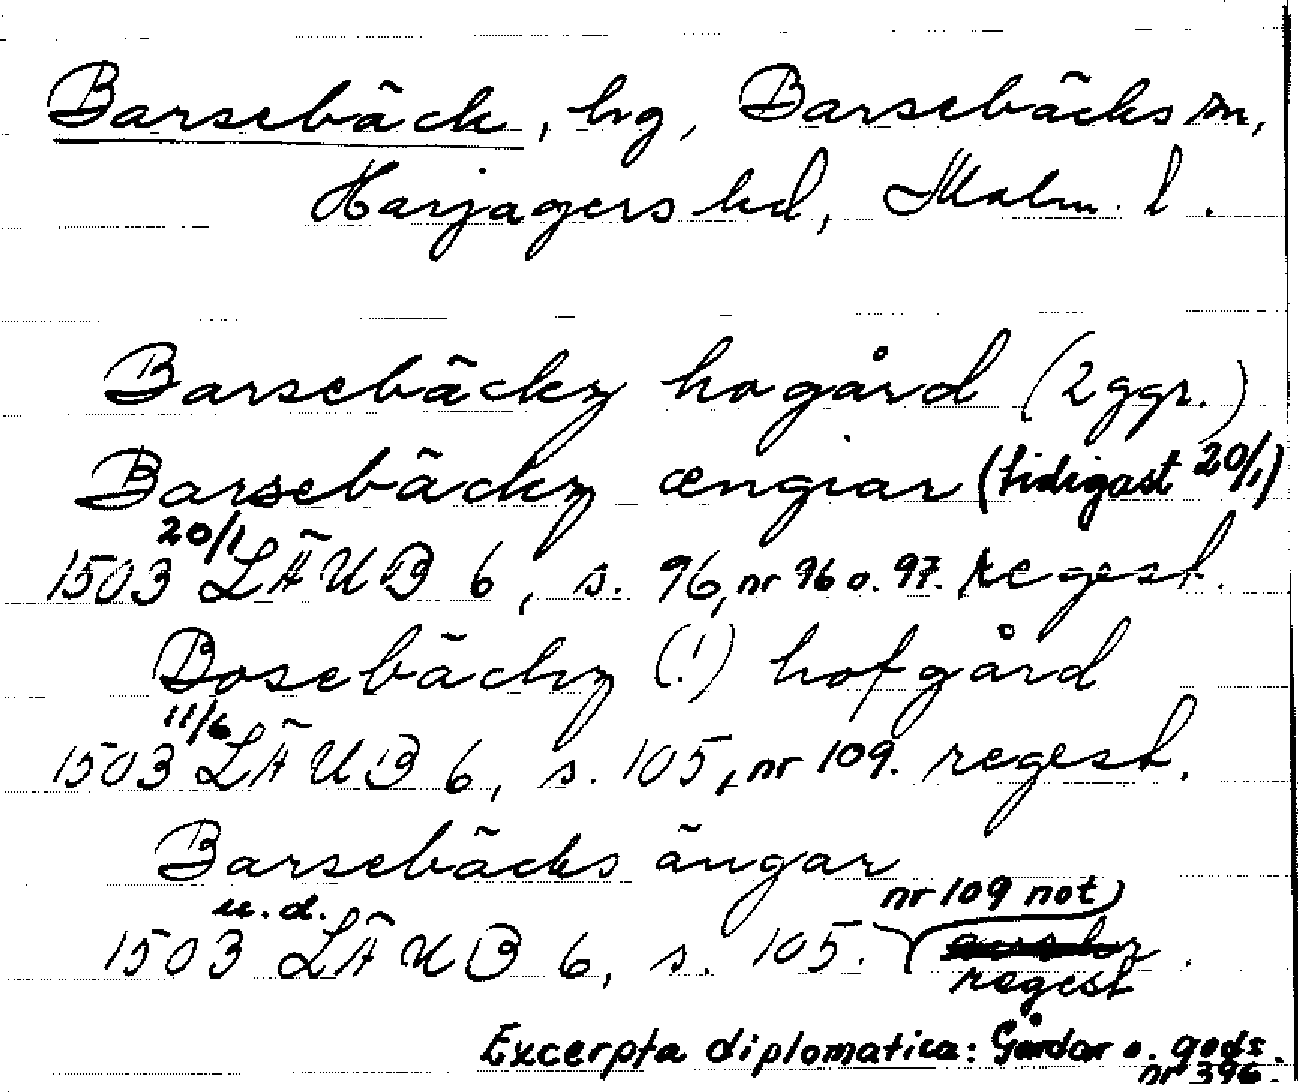 Barsebäck, hg, Barsebäcks sn,
Harjagers hd, Malm. l.
Barsebäckz hogård (2 ggr.)
Barsebäckz ængiar (tidigast 20/1)
20/1
1503 LÄUB 6, s. 96, nr 96 o. 97. regest.
Bosebäckz (!) hofgård
11/6
1503 LÄUB 6, s. 105, nr 109. regest.
Barsebäcks ängar
nr 109 not
u. d.
1503 LÄUB 6, s. 105. .
regest
Excerpta diplomatica: Gårdar o. gods.
nr 396.